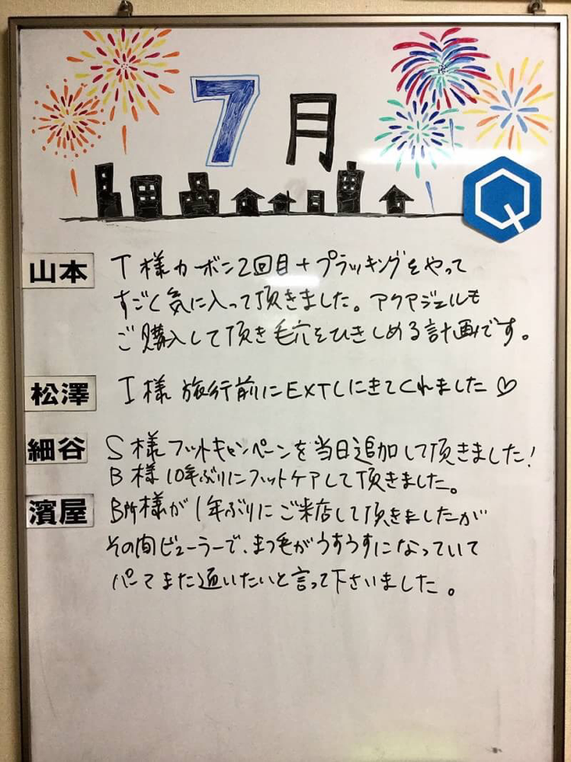 7月
Q
山本
T様カーボン2回目+プラッキングをやって
すごく気に入って頂きました。アクアジェルも
ご購入して頂き毛穴をひきしめる計画です。
松澤
I様 旅行前にEXTしにきてくれました♡
細谷
S様フットキャンペーンを当日追加して頂きました!
B様10年ぶりにフットケアして頂きました。
濱屋
様が1年ぶりにご来店して頂きましたが
その間ビューラーで、まつ毛がうすうすになっていて
パーマまた通いたいと言って下さいました。